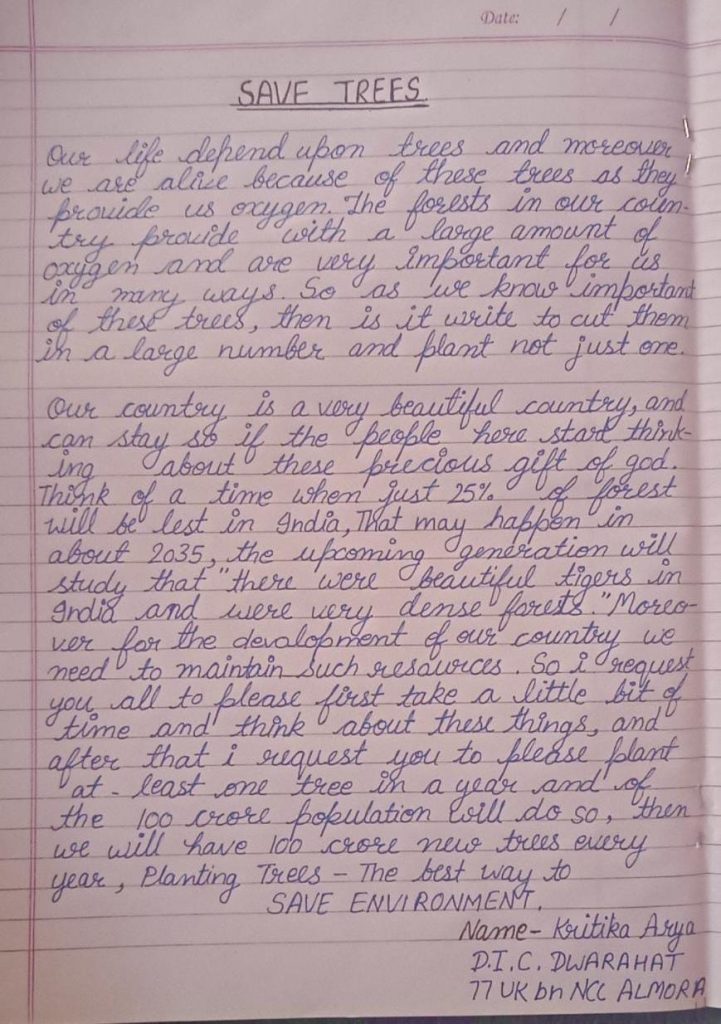 Date: / /
SAVE TREES
Our life depend upon trees and moreover
we are alive because of these trees as they
provide us oxygen. The forests in our coun-
try provide with a large amount of
oxygen and are very important for us
in many ways. So as we know important
of these trees, then is it write to cut them
in a large number and plant not just one.
Our country is a very beautiful country, and
can stay so if the people here start think-
ing about these precious gift of god.
Think of a time when just 25% of forest
will be lest in India, That may happen in
about 2035, the upcoming generation will
study that "there were beautiful tigers in
India and were very dense forests." Moreo-
ver for the devalopment of our country we
need to maintain such resources. So i request
you all to please first take a little bit of
time and think about these things, and
after that i request you to please plant
at-least one tree in a year and of
the 100 crore population will do so, then
we will have 100 crore new trees every
year, Planting Trees - The best way to
SAVE ENVIRONMENT.
Name- Kritika Arya
D.I.C. DWARAHAT
77 UK bn NCC ALMORA